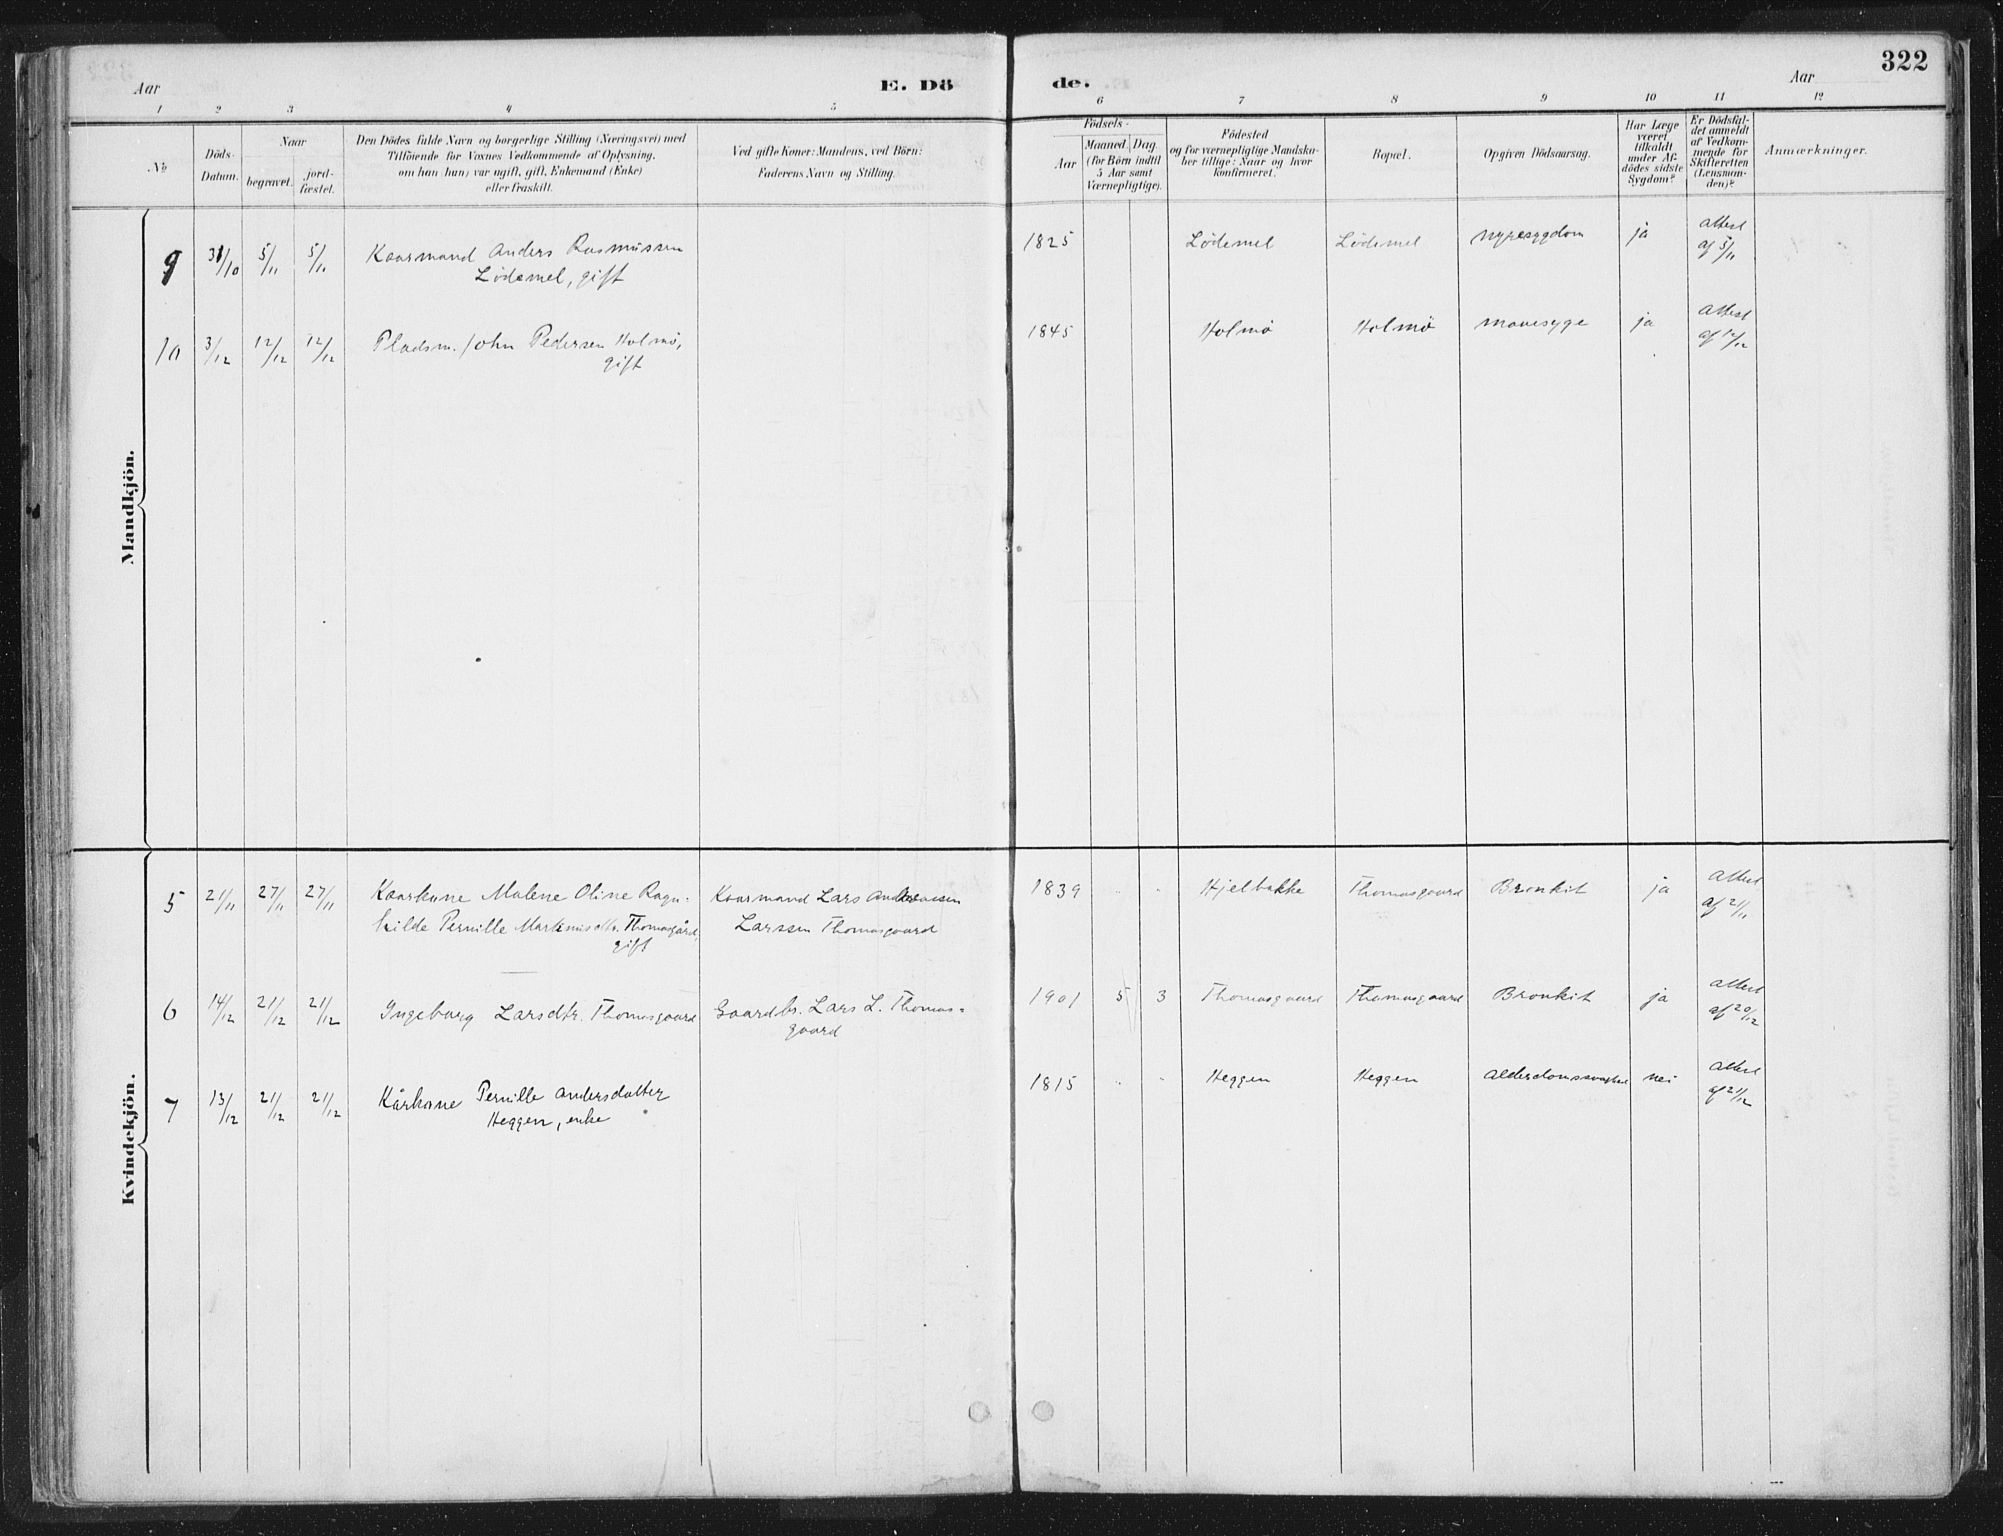 322
Aar
E. Dö
de.
Aar
1 2 3 4 5 6 7 8 9 10 11 12
No
Döds-
Datum.
Naar
begravet.
jord-
fæstet.
Den Dödes fulde Navn og borgerlige Stilling (Næringsvei) med
Tilföiende for Voxnes Vedkommende af Oplysning,
om han (hun) var ugift, gift, Enkemand (Enke)
eller fraskilt.
Ved gifte Koner: Mandens, ved Börn:
Faderens Navn og Stilling.
Födsels-
Aar
Maaned. Dag.
(for Börn indtil
5 Aar samt
Værnepligtige).
Födested
og for værnepligtige Mandska-
ber tillige: Naar og hvor
konfirmeret.
Bopæl.
Opgiven Dödsaarsag.
Har Læge
været
tilkaldt
under Af-
dödes sidste
Sygdom?
Er Dödsfal-
det anmeldt
af Vedkom-
mende for
Skifteretten
(Lensman-
den)?
Anmærkninger.
Mandkjön.
9 31/10 5/11 5/11 Kaarmand Anders Rasmussen 1825 Lødemel Lødemel nyresygdom ja Attest
Lødemel, gift af 5/11
10 3/12 12/12 12/12 Pladsm. John Pedersen Holmø, 1845 Holmø Holmø mavesyge ja Attest
gift af 12/12
Kvindekjön.
5 21/11 27/11 27/11 Kaarkone Malene Oline Ragn- Kaarmand Lars 1839 " " Hjelbakke Thomasgaard Bronkit ja Attest
hilde Pernille Martinusdtr. Thomasgård, Larssen Thomasgaard af 21/11
gift
6 14/12 21/12 21/12 Ingeborg Larsdtr. Thomasgaard Gaardbr. Lars L. Thomas- 1901 5 3 Thomasgaard Thomasgaard Bronkit ja Attest
gaard af 20/12
7 13/12 21/12 21/12 Kårkone Pernille Andersdatter 1815 " " Heggen Heggen Alderdomssvaghed nei Attest
Heggen, enke af 21/12